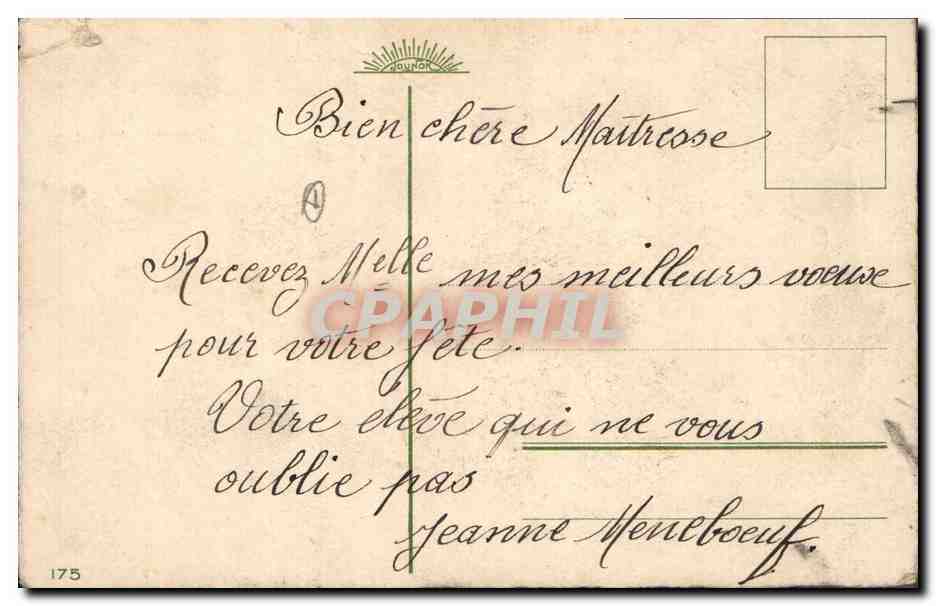 JOUNOK
Bien chère Maîtresse
1
Recevez Melle mes meilleurs voeux
CPAPHIL
pour votre fête.
Votre elève qui ne vous
oublie pas
Jeanne Meneboeuf.
175